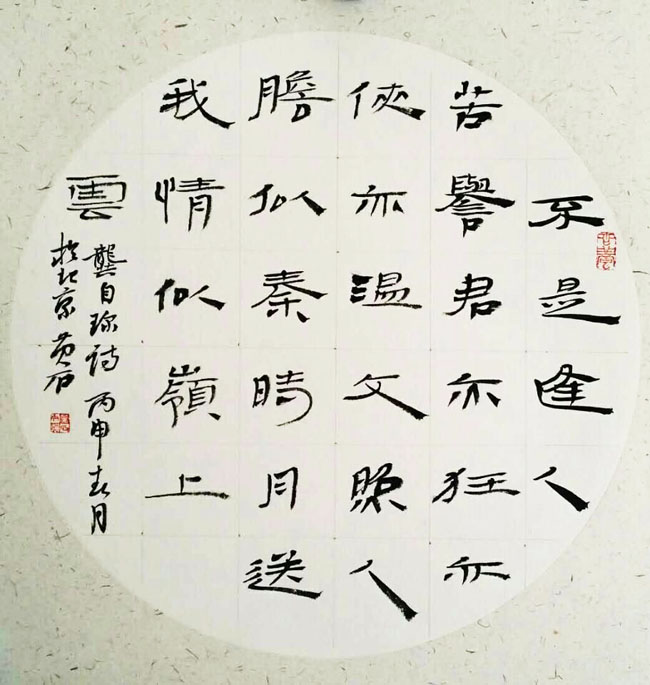 不是逢人
苦譽君亦狂亦
俠亦温文照人
膽似秦時月送
我情似嶺上
雲
龔自珍诗 丙申春月
於北京 黄石